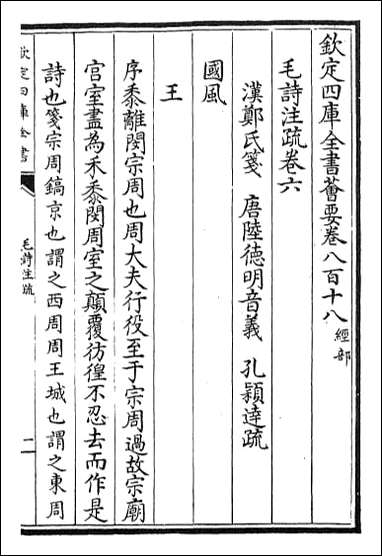 欽定四庫全書薈要卷八百十八 經部
毛詩注疏卷六
漢鄭氏箋 唐陸德明音義 孔穎達疏
國風
王
序黍離閔宗周也周大夫行役至于宗周過故宗廟
宫室盡為禾黍閔周室之顛覆彷徨不忍去而作是
詩也箋宗周鎬京也謂之西周周王城也謂之東周
欽定四庫全書
毛詩注疏